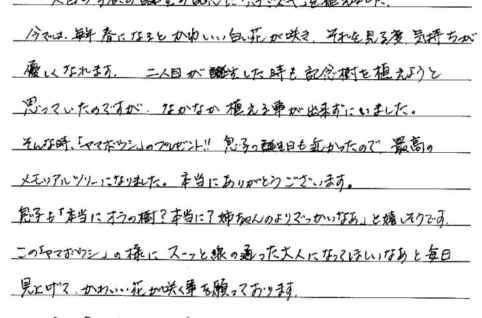 人目の子供の誕生の記念に「ハナミズキ」を植えました。
今では、毎年春になるとかわいい白い花が咲き、それを見る度、気持ちが
優しくなれます。 二人目が誕生した時も記念樹を植えようと
思っていたのですが、なかなか植える事が出来ずにいました。
そんな時、「ヤマボウシ」のプレゼント!! 息子の誕生日も近かったので、最高の
メモリアルツリーになりました。本当にありがとうございます。
息子も「本当にオラの樹?本当に?姉ちゃんのよりでっかいなあ」と嬉しそうです。
この「ヤマボウシ」の様にスーッと線の通った大人になってほしいなあと毎日
見上げて、かわいい花が咲く事を願っております。